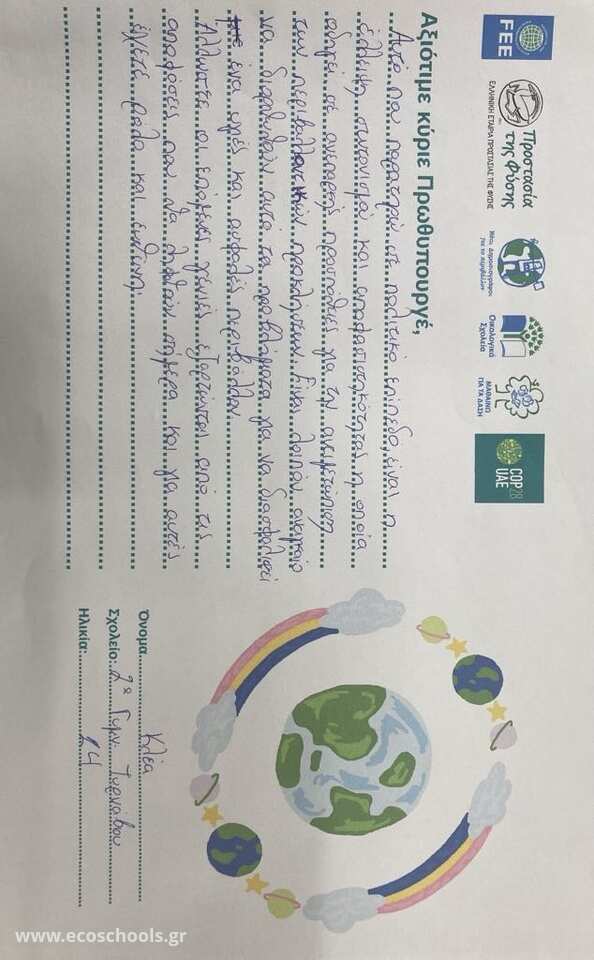 FEE
Προστασία
της Φύσης
ΕΛΛΗΝΙΚΗ ΕΤΑΙΡΙΑ ΠΡΟΣΤΑΣΙΑΣ ΤΗΣ ΦΥΣΗΣ
Νέοι Δημοσιογράφοι
για το περιβάλλον
Οικολογικά
Σχολεία
ΜΑΘΑΙΝΩ
ΓΙΑ ΤΑ ΔΑΣΗ
COP28
UAE
Αξιότιμε κύριε Πρωθυπουργέ,
Αυτό που παρατηρώ σε πολιτικό επίπεδο, είναι η
έλλειψη συντονισμού και αποφασιστικότητας η οποία
οδηγεί σε ανεπαρκής προσπάθειες για την αντιμετώπιση
των περιβαλλοντικών προκλήσεων. Είναι λοιπόν αναγκαίο
να διορθωθούν αυτά τα προβλήματα για να διασφαλιστεί
ένα υγιές και ασφαλές περιβάλλον.
Άλλωστε οι επόμενες γενιές εξαρτώνται από τις
αποφάσεις που θα ληφθούν σήμερα και για αυτές
έχετε και ευθύνη.
Όνομα: Κλέα
Σχολείο: 2ο Γυμν. Τυρνάβου
Ηλικία: 14
www.ecoschools.gr